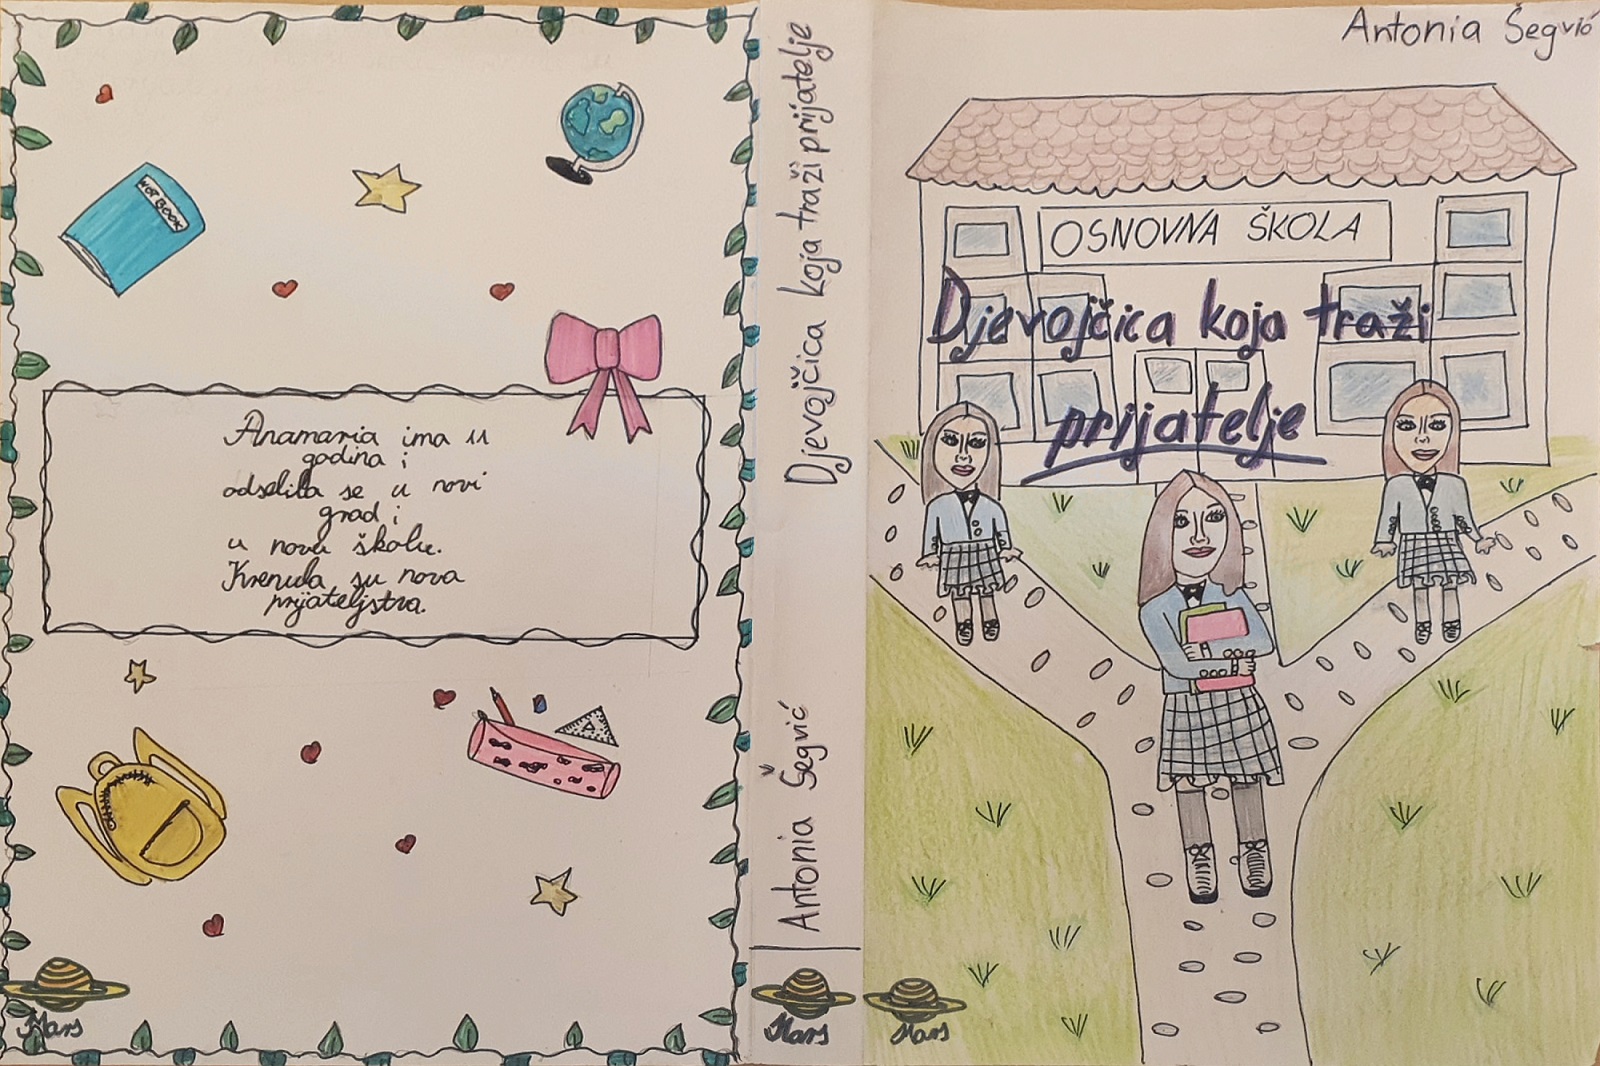 WORKBOOK
Anamaria ima 11
godina i
odselila se u novi
grad i
u novu školu.
Krenula su nova
prijateljstva.
Mars
Djevojčica koja traži prijatelje
Antonia Šegvić
Mars
Antonia Šegvić
OSNOVNA ŠKOLA
Djevojčica koja traži
prijatelje
Mars